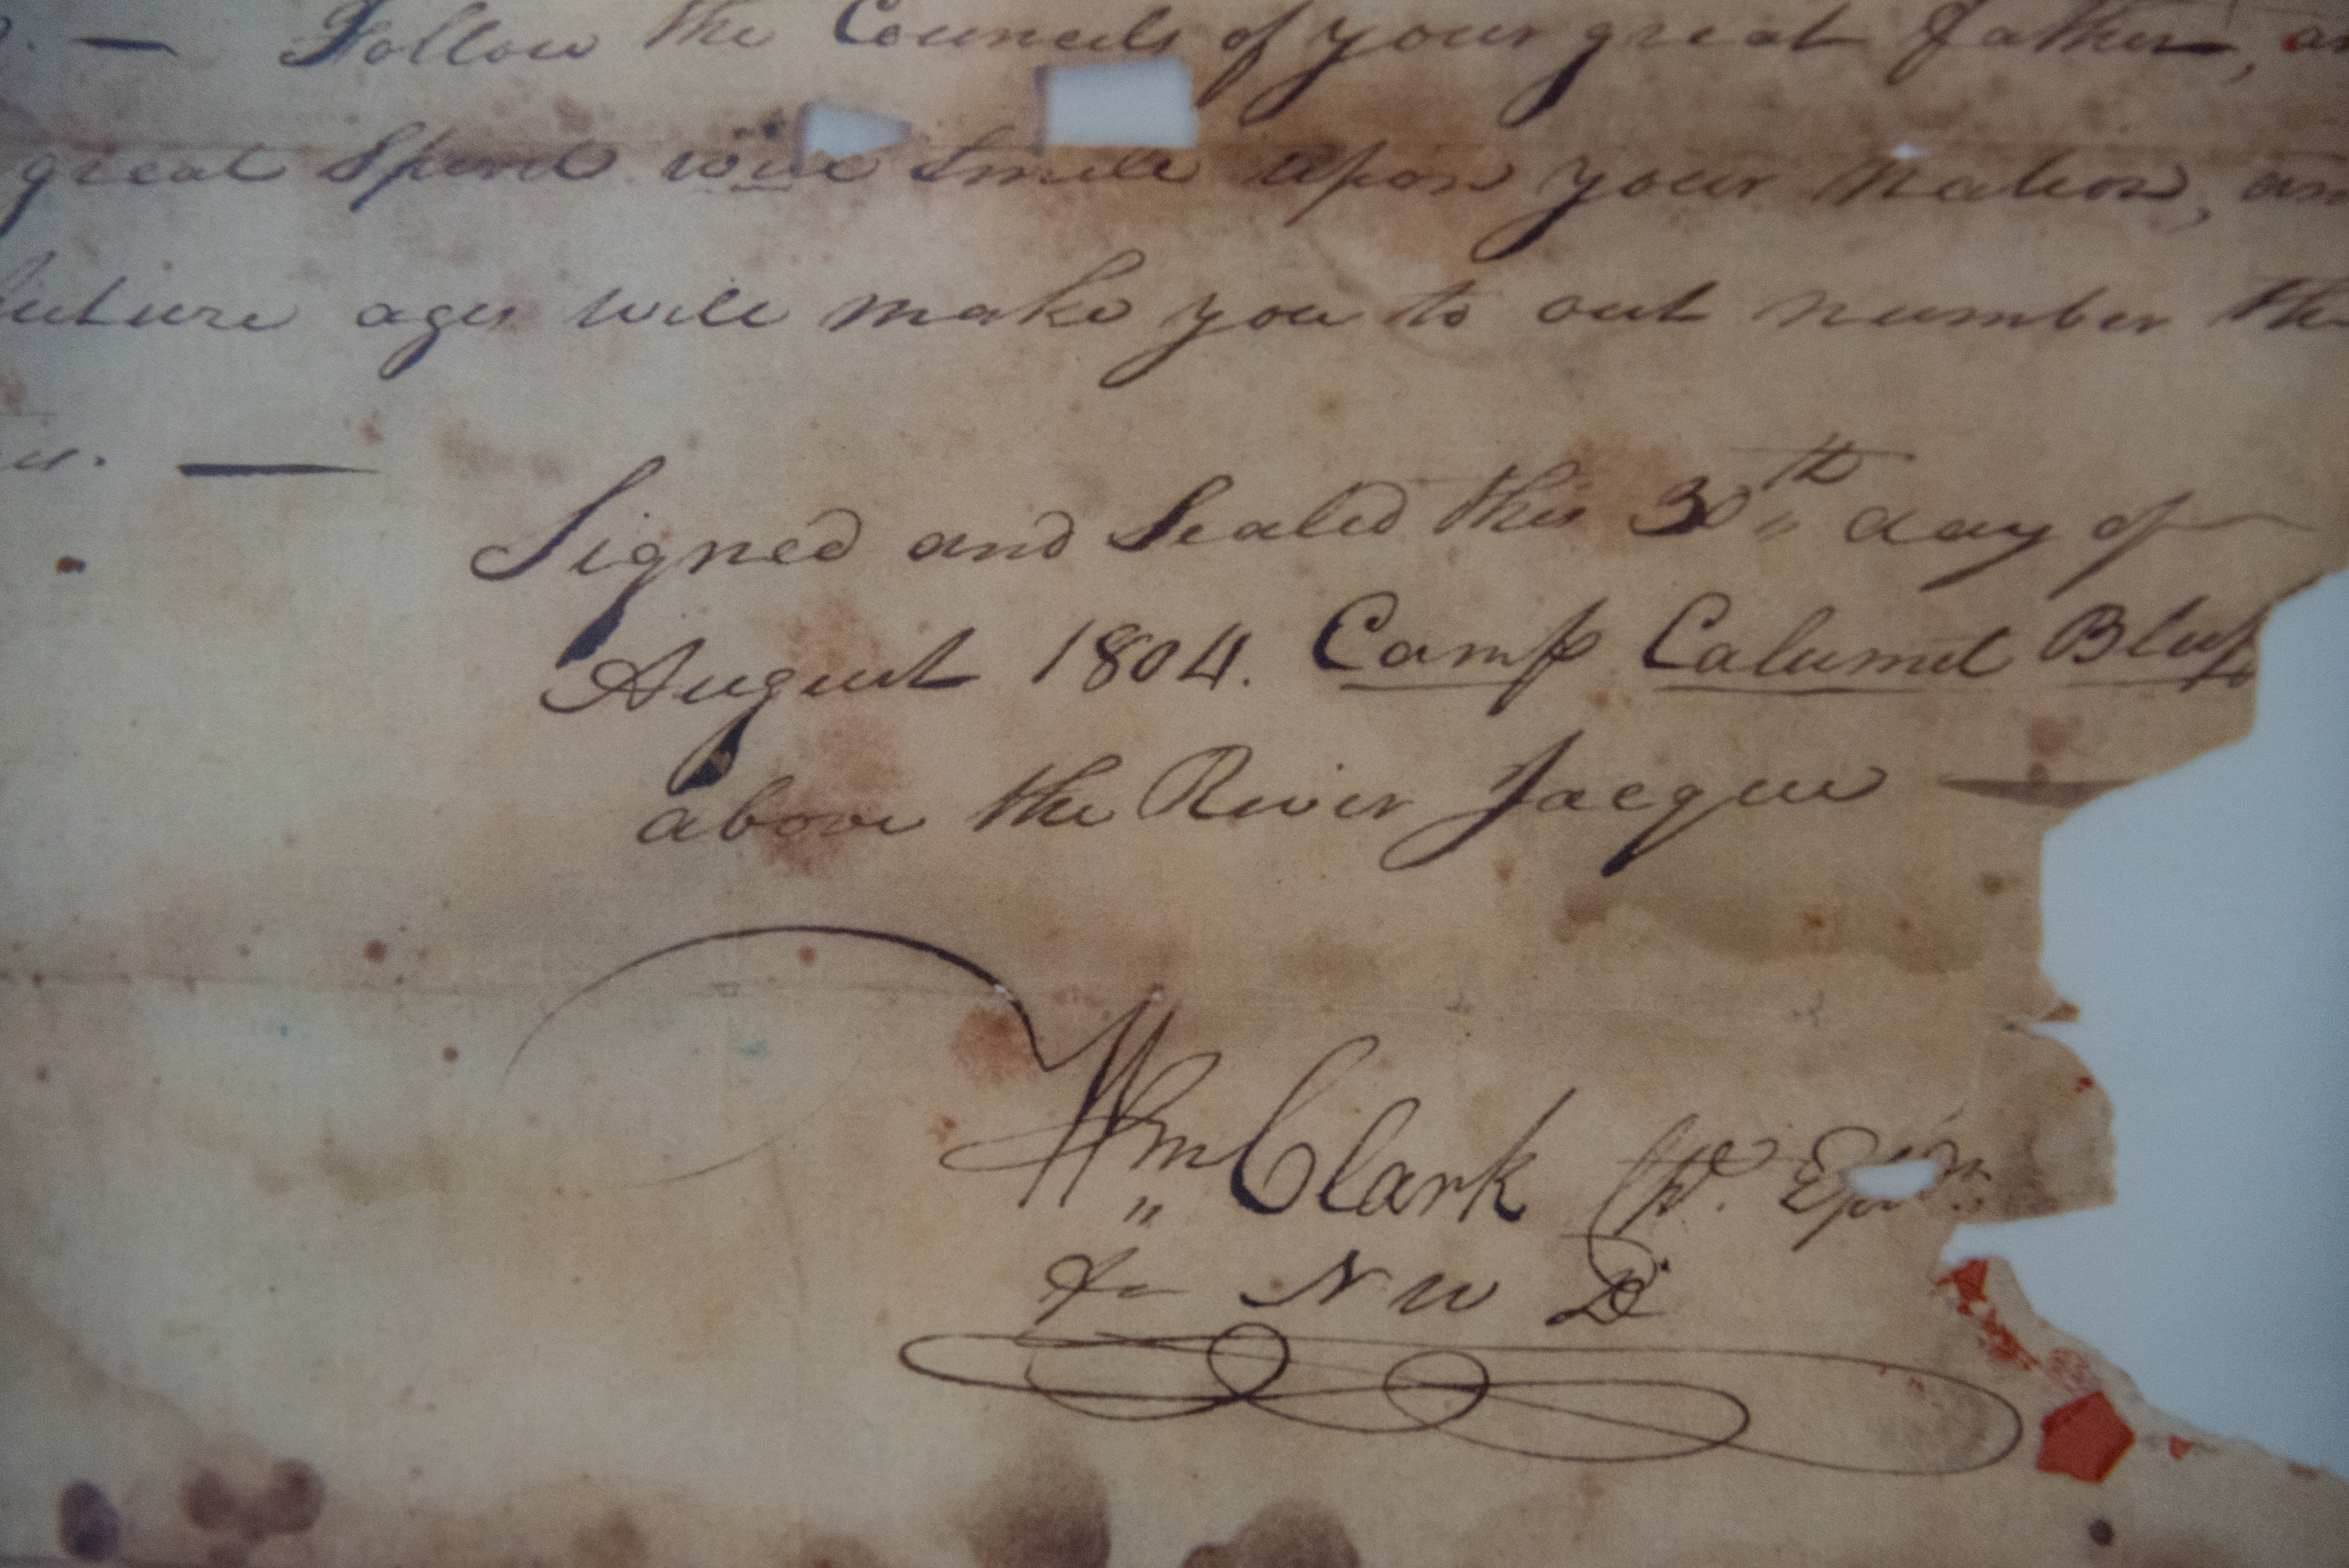 — Follow the Councils of your great father, an
great Spirit will Smile upon your Nation, an
future ages will make you to out number the
— 
Signed and Sealed this 30th day of
August 1804. Camp Calumet Bluff
above the River Jacque —
Wm Clark Cpt.
for N W D